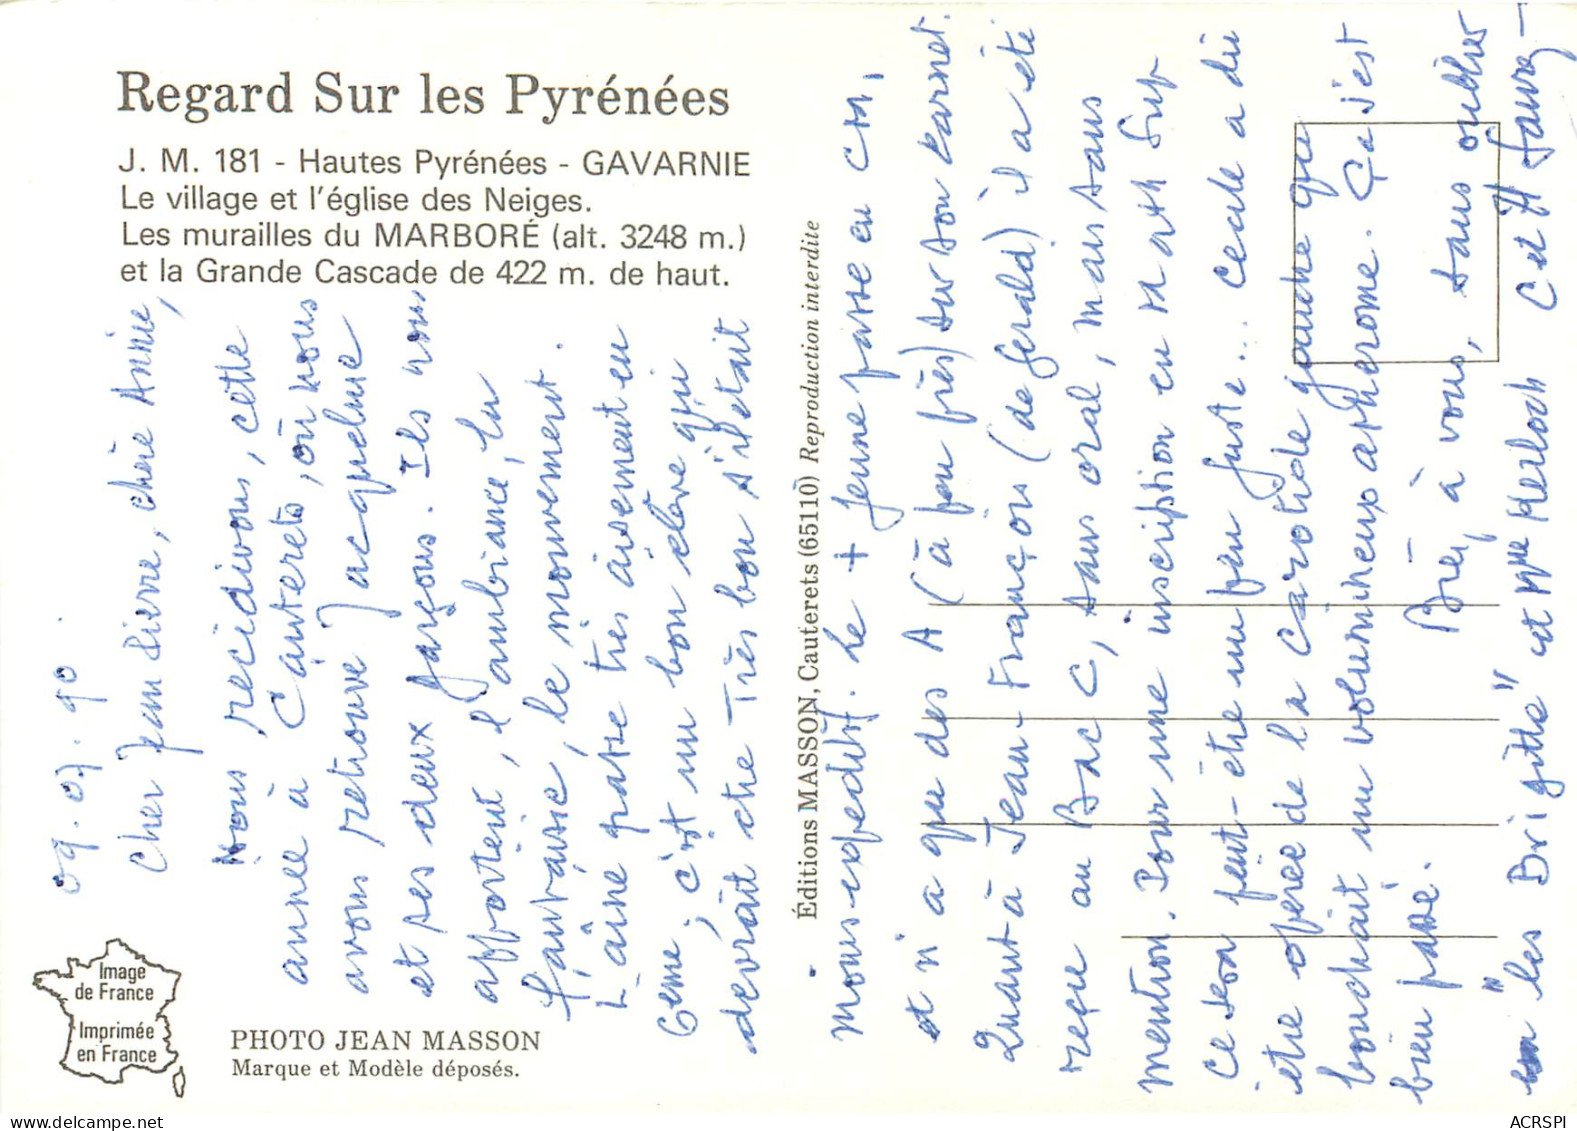 Regard Sur les Pyrénées
J. M. 181 - Hautes Pyrénées - GAVARNIE
Le village et l'église des Neiges.
Les murailles du MARBORÉ (alt. 3248 m.)
et la Grande Cascade de 422 m. de haut.
09.07.90.
Cher Jean Pierre, chère Annie,
Nous recidivons, cette
année à Cauterets, où nous
avons retrouvé Jacqueline
et ses deux garçons. Ils nous
apportent, l'ambiance, la
fantaisie, le mouvement.
L'aîné passe très aisement en
6eme, c'est un bon élève qui
devrait être Très bon s'il était
Image
de France
Imprimée
en France
PHOTO JEAN MASSON
Marque et Modèle déposés.
Éditions MASSON, Cauterets (65110) Reproduction interdite
moins expéditif. Le + jeune passe en CM1
et n'a que des A (à peu près) sur son carnet.
Quant à Jean-François (de Gérald) il a été
reçu au Bac C, sans oral, mais sans
mention. Pour une inscription en Math Sup
ce sera peut-être un peu juste... Cecile a dû
être opérée de la carotide gauche que
bouchait un volumineux atherome. Ça s'est
bien passé.
Bien à vous, sans oublier
"les Brigitte" et